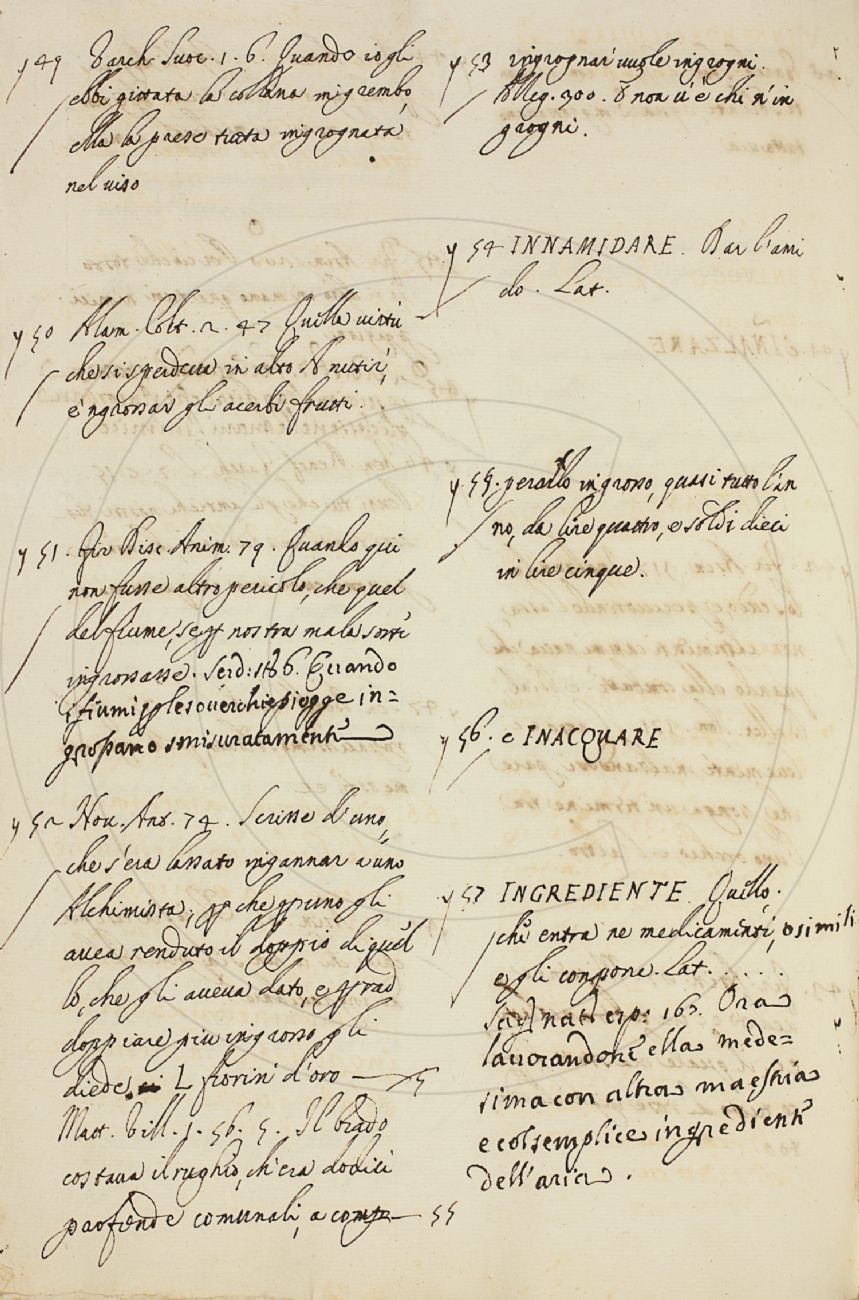 y 49 Varch. Suoc. 1. 6. Quando io gli
ebbi gittata la collana in grembo,
ella le paese tutta ingrognata
nel viso
y 50 Alam. Colt. 2. 47 Quella virtù
che si sperdeva in alto A nutrir,
e 'ngrossar gli acerbi frutti.
y 51. Fir. Disc. Anim. 79. Quando qui
non fusse altro pericolo, che quel
del fiume, se nostra mala sorte
ingrossasse. Quando
i fiumi soverchie piogge in=
grossano smisuratamente
y 52 Nov. Ant. 74. Scrisse d'uno,
che s'era lassato ingannar a uno
Alchimista, che uno gli
avea renduto il doppio di quel
lo, che gli aveva dato, e
doppiare piu in grosso gli
diede L fiorini d'oro
Matt. Vill. 1. 56. 5. Il biado
costava il rughio, ch'era dodici
profende comunali, a 55
y 53 ingrognar vuole ingrogni.
Alleg. 300. E non v'è chi n'in
grogni.
y 54 INNAMIDARE. Dar l'ami
do. Lat.
y 55. in grosso, quasi tutto l'an
no, da lire quattro, e soldi dieci
in lire cinque.
y 56. e INACQUARE
y 57 INGREDIENTE. Quello.
che entra ne medicamenti, o simili
e gli conpone. Lat. . . . . .
Sag. nat. esp: 167. Ora
lavorandone ella mede=
sima con altra maestria
e col semplice ingrediente
dell'aria.